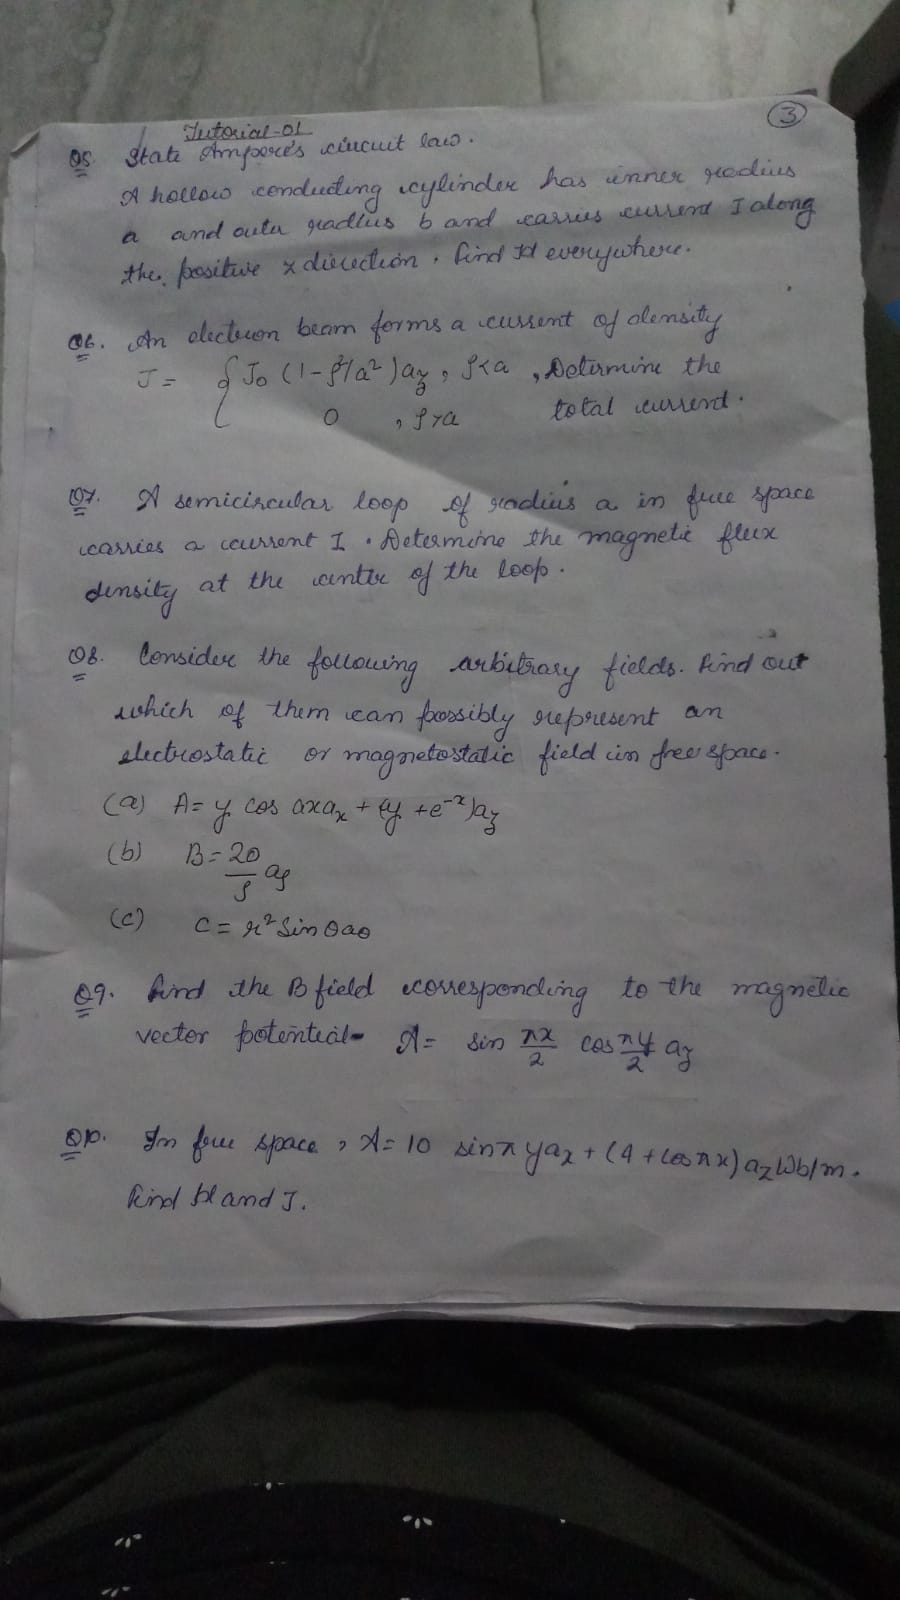 3
Tutorial-01
Q5. State Ampere's circuit law.
A hollow conducting cylinder has inner radius
a and outer radius b and carries current I along
the positive z direction. find H everywhere.
Q6. An electron beam forms a current of density
J = { J₀ (1-ρ²/a²)a_z , ρ<a , Determine the
0 , ρ>a total current.
Q7. A semicircular loop of radius a in free space
carries a current I. Determine the magnetic flux
density at the center of the loop.
Q8. Consider the following arbitrary fields. Find out
which of them can possibly represent an
electrostatic or magnetostatic field in free space.
(a) A = y cos axa_x + (y + e^-x)a_z
(b) B = 20/ρ a_ρ
(c) C = r² Sin θ aθ
Q9. Find the B field corresponding to the magnetic
vector potential- A = sin πx/2 cos πy/2 a_z
Q10. In free space, A = 10 sin π y a_x + (4 + cos πx) a_z Wb/m.
Find H and J.